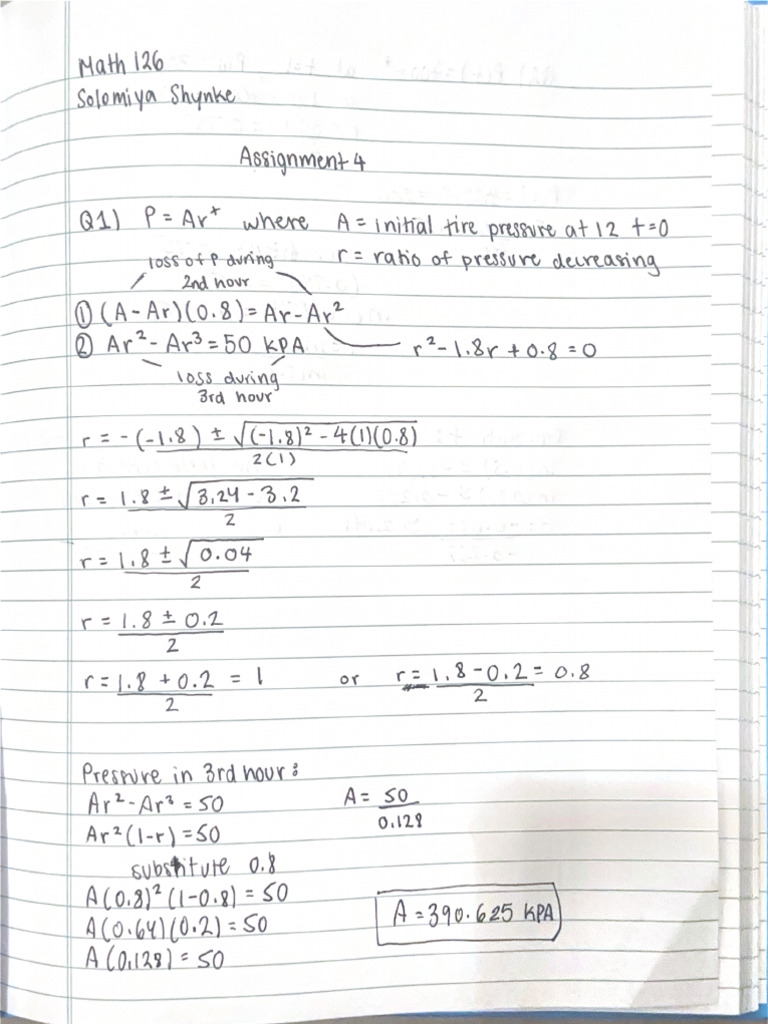 Math 126
Solomiya Shynke
Assignment 4
Q1) P = Ar^t where A = initial tire pressure at 12 t=0
r = ratio of pressure decreasing
loss of P during
2nd hour
① (A - Ar)(0.8) = Ar - Ar²
② Ar² - Ar³ = 50 KPA r² - 1.8r + 0.8 = 0
loss during
3rd hour
r = -(-1.8) ± √(-1.8)² - 4(1)(0.8)
2(1)
r = 1.8 ± √3.24 - 3.2
2
r = 1.8 ± √0.04
2
r = 1.8 ± 0.2
2
r = 1.8 + 0.2 = 1 or r = 1.8 - 0.2 = 0.8
2 2
Pressure in 3rd hour:
Ar² - Ar³ = 50 A = 50
0.128
Ar²(1-r) = 50
substitute 0.8
A(0.8)²(1-0.8) = 50
A(0.64)(0.2) = 50 A = 390.625 KPA
A(0.128) = 50